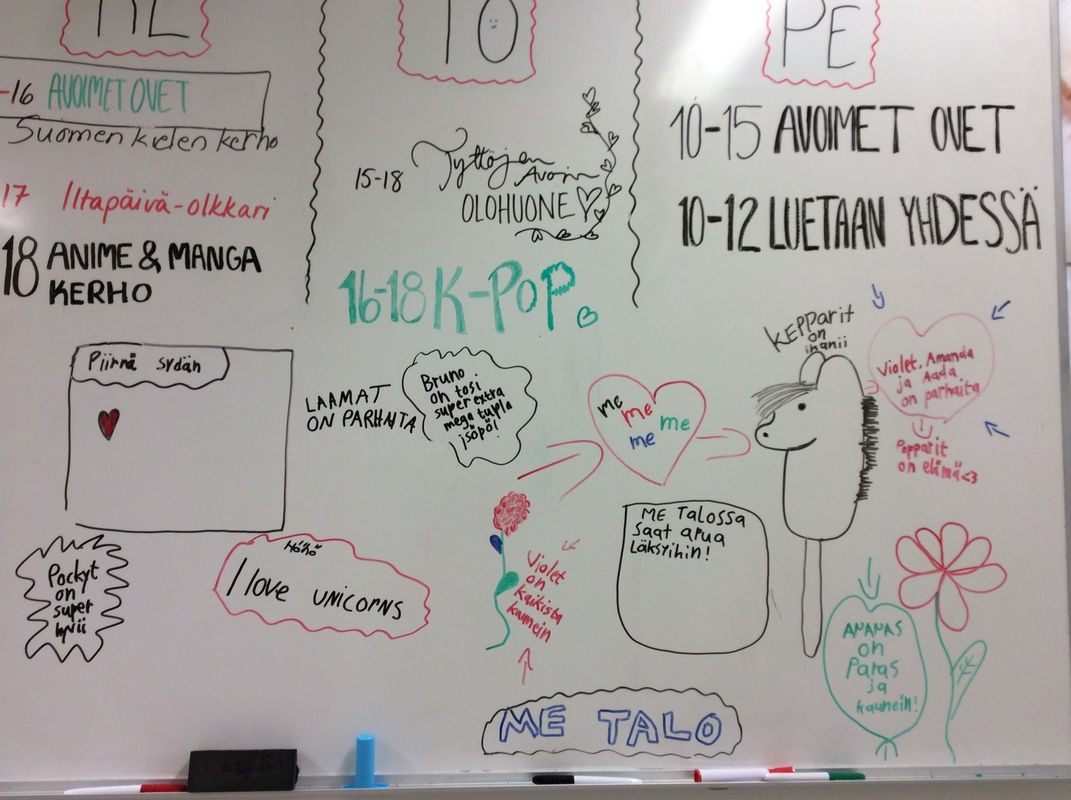 TO
PE
-16 AVOIMET OVET
Suomen kielen kerho
17 Iltapäivä-olkkari
18 ANIME & MANGA
KERHO
15-18 Tyttöjen
Avoin
OLOHUONE
16-18 K-POP
10-15 AVOIMET OVET
10-12 LUETAAN YHDESSÄ
Piirrä sydän
LAAMAT
ON PARHAITA
Bruno
on tosi
super extra
mega tupla
jsöpö!
me
me
me
me
KEPPARIT
on
ihanii
Violet, Amanda
ja Aada
on parhaita
Popparit
on elämä<3
Pockyt
on
super
hyvii
Höhö
I love UNICORNS
Violet
on
kaikista
kaunein
ME TALOSSA
saat apua
Läksyihin!
ANANAS
on
Paras
ja
kaunein!
ME TALO